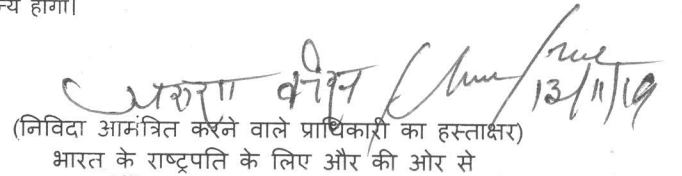 न्य होगा।
13/11/19
(निविदा आमंत्रित करने वाले प्राधिकारी का हस्ताक्षर)
भारत के राष्ट्रपति के लिए और की ओर से